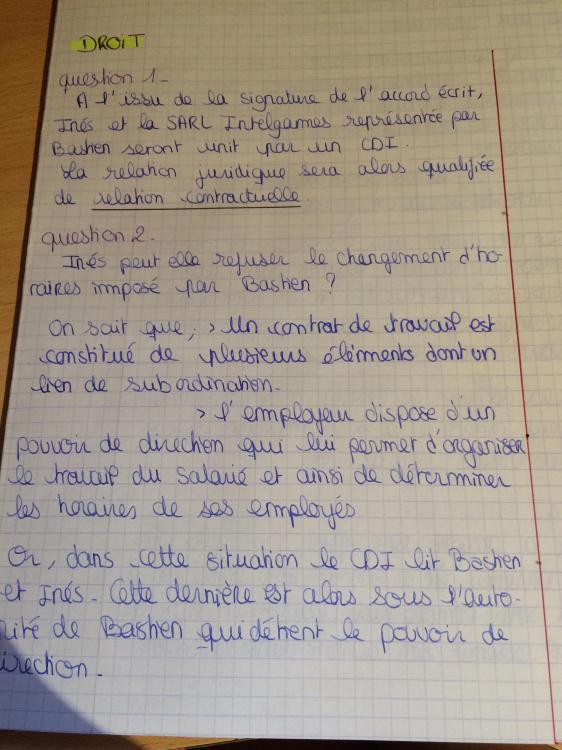 DROIT
question 1 -
A l'issu de la signature de l'accord écrit,
Inés et la SARL Intelgames représentée par
Bastien seront unit par un CDI.
La relation juridique sera alors qualifiée
de relation contractuelle.
question 2.
Inés peut elle refuser le changement d'ho-
raires imposé par Bastien ?
On sait que, > Un contrat de travail est
constitué de plusieurs éléments dont un
lien de subordination.
> l'employeur dispose d'un
pouvoir de direction qui lui permet d'organiser
le travail du salarié et ainsi de déterminer
les horaires de ses employés
Or, dans cette situation le CDI lit Bastien
et Inés. Cette dernière est alors sous l'auto-
rité de Bastien qui détient le pouvoir de
direction.